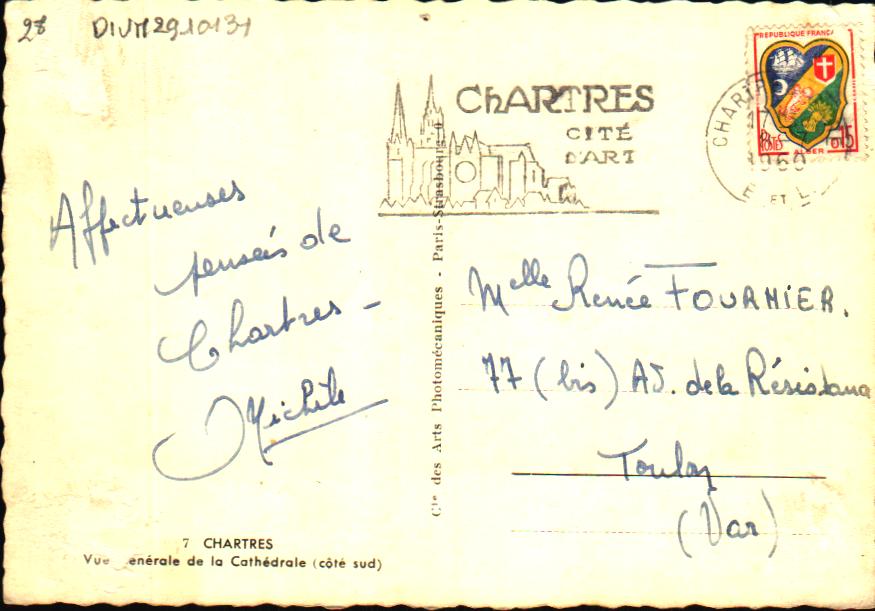 28 DIVM2910131
CHARTRES
CITÉ
D'ART
REPUBLIQUE FRANÇA
POSTES
ALGER
0.15
CHARTR
1960
E ET L
Affectueuses
pensées de
Chartres -
Michèle
Melle Renée FOURNIER.
77 (bis) AV. de la Résistance
Toulon
(Var)
Cie des Arts Photomécaniques - Paris-Strasbourg
7 CHARTRES
Vue générale de la Cathédrale (côté sud)